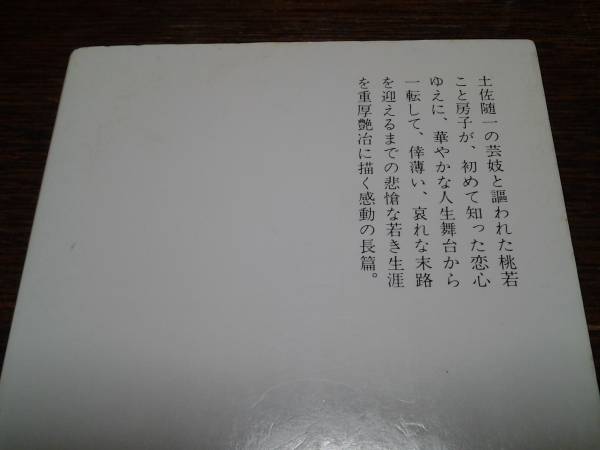 土佐随一の芸妓と謳われた桃若
こと房子が、初めて知った恋心
ゆえに、華やかな人生舞台から
一転して、倖薄い、哀れな末路
を迎えるまでの悲愴な若き生涯
を重厚艶冶に描く感動の長篇。